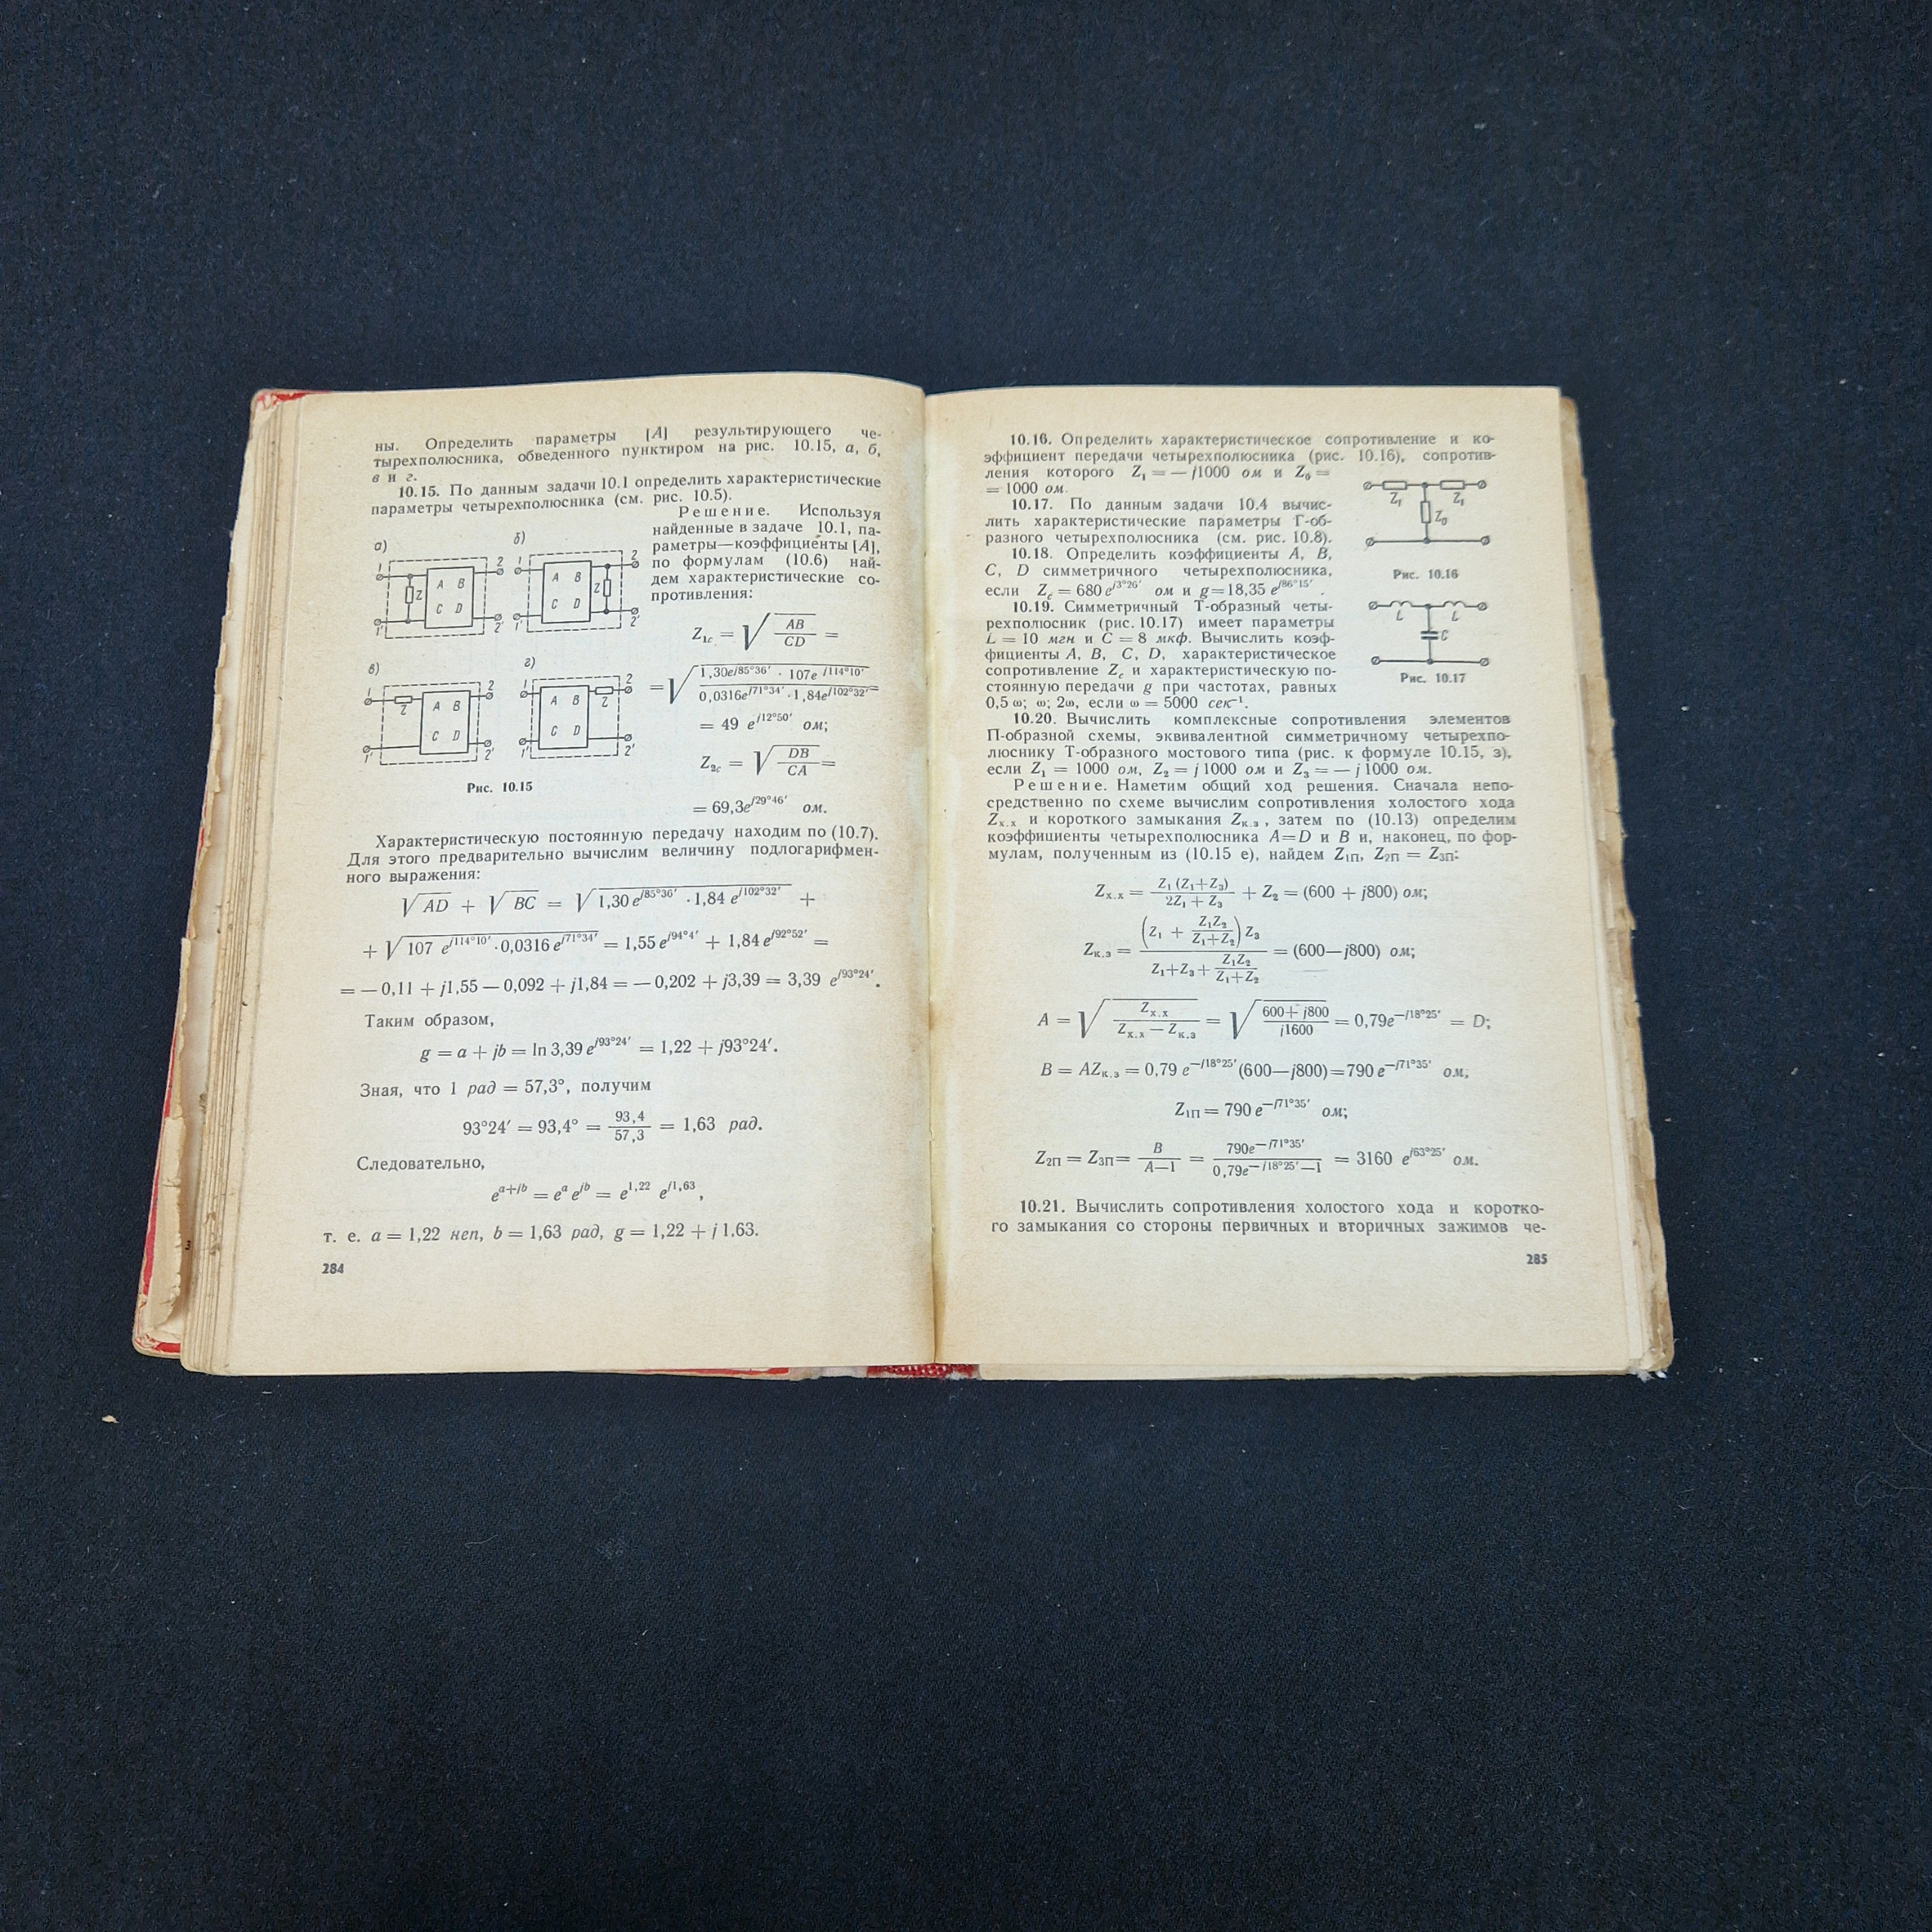 ны. Определить параметры [A] результирующего че-
тырехполюсника, обведенного пунктиром на рис. 10.15, а, б,
в и г.
10.15. По данным задачи 10.1 определить характеристические
параметры четырехполюсника (см. рис. 10.5).
Решение. Используя
найденные в задаче 10.1, па-
раметры—коэффициенты [A],
по формулам (10.6) най-
дем характеристические со-
противления:
а) б)
1 2 1 2
Z A B A B Z
C D C D
1' 2' 1' 2'
в) г)
1 2 1 2
Z A B A B Z
C D C D
1' 2' 1' 2'
Рис. 10.15
Z₁c = √(AB/CD) =
= √(1,30e^{j85°36'} · 107e^{j114°10'} / 0,0316e^{j71°34'} · 1,84e^{j102°32'}) =
= 49 e^{j12°50'} ом;
Z₂c = √(DB/CA) =
= 69,3e^{j29°46'} ом.
Характеристическую постоянную передачу находим по (10.7).
Для этого предварительно вычислим величину подлогарифмен-
ного выражения:
√AD + √BC = √(1,30 e^{j85°36'} · 1,84 e^{j102°32'}) +
+ √(107 e^{j114°10'} · 0,0316 e^{j71°34'}) = 1,55 e^{j94°4'} + 1,84 e^{j92°52'} =
= — 0,11 + j1,55 — 0,092 + j1,84 = — 0,202 + j3,39 = 3,39 e^{j93°24'}.
Таким образом,
g = a + jb = ln 3,39 e^{j93°24'} = 1,22 + j93°24'.
Зная, что 1 рад = 57,3°, получим
93°24' = 93,4° = 93,4/57,3 = 1,63 рад.
Следовательно,
e^{a+jb} = e^a e^{jb} = e^{1,22} e^{j1,63},
т. е. a = 1,22 неп, b = 1,63 рад, g = 1,22 + j 1,63.
284
10.16. Определить характеристическое сопротивление и ко-
эффициент передачи четырехполюсника (рис. 10.16), сопротив-
ления которого Z₁ = — j1000 ом и Z₀ =
= 1000 ом.
10.17. По данным задачи 10.4 вычис-
лить характеристические параметры Г-об-
разного четырехполюсника (см. рис. 10.8).
10.18. Определить коэффициенты A, B,
C, D симметричного четырехполюсника,
если Zc = 680 e^{j3°26'} ом и g=18,35 e^{j86°15'} .
10.19. Симметричный Т-образный четы-
рехполюсник (рис. 10.17) имеет параметры
L = 10 мгн и C = 8 мкф. Вычислить коэф-
фициенты A, B, C, D, характеристическое
сопротивление Zc и характеристическую по-
стоянную передачи g при частотах, равных
0,5 ω; ω; 2ω, если ω = 5000 сек⁻¹.
Z₁ Z₁
Z₀
Рис. 10.16
L L
C
Рис. 10.17
10.20. Вычислить комплексные сопротивления элементов
П-образной схемы, эквивалентной симметричному четырехпо-
люснику Т-образного мостового типа (рис. к формуле 10.15, з),
если Z₁ = 1000 ом, Z₂ = j 1000 ом и Z₃ = — j 1000 ом.
Решение. Наметим общий ход решения. Сначала непо-
средственно по схеме вычислим сопротивления холостого хода
Zх.х и короткого замыкания Zк.з , затем по (10.13) определим
коэффициенты четырехполюсника A=D и B и, наконец, по фор-
мулам, полученным из (10.15 е), найдем Z1П, Z2П = Z3П:
Zх.х = Z₁ (Z₁+Z₃)/(2Z₁ + Z₃) + Z₂ = (600 + j800) ом;
Zк.з = (Z₁ + Z₁Z₂/(Z₁+Z₂)) Z₃ / (Z₁+Z₃+ Z₁Z₂/(Z₁+Z₂)) = (600—j800) ом;
A = √(Zх.х/(Zх.х — Zк.з)) = √((600+ j800)/j1600) = 0,79e^{—j18°25'} = D;
B = AZк.з = 0,79 e^{—j18°25'} (600—j800)=790 e^{—j71°35'} ом,
Z1П = 790 e^{—j71°35'} ом;
Z2П = Z3П= B/(A—1) = 790e^{—j71°35'}/(0,79e^{—j18°25'}—1) = 3160 e^{j63°25'} ом.
10.21. Вычислить сопротивления холостого хода и коротко-
го замыкания со стороны первичных и вторичных зажимов че-
285